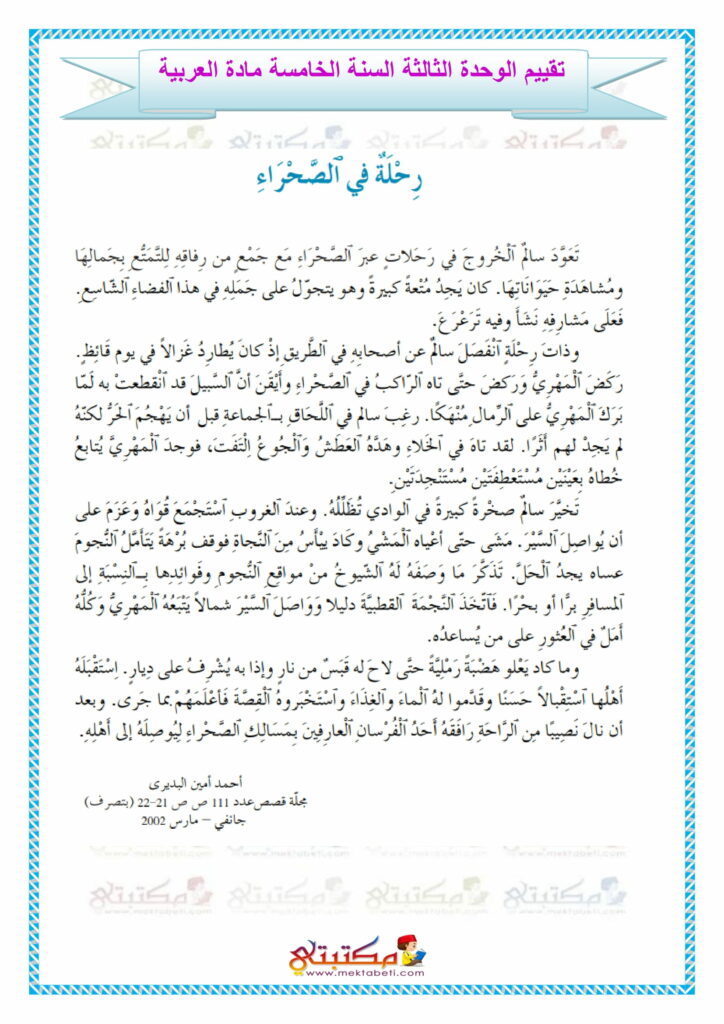 تقييم الوحدة الثالثة السنة الخامسة مادة العربية
مكتبتي مكتبتي مكتبتي مكتبتي
رِحْلَةٌ في ٱلصَّحْرَاءِ
تَعَوَّدَ سالمٌ ٱلْخُروجَ في رَحَلاتٍ عبرَ ٱلصَّحْرَاءِ مَع جَمْعٍ من رِفاقِهِ لِلتَّمَتُّعِ بِجَمالِهَا
ومُشاهَدَةِ حيَوَاناتِهَا. كان يَجِدُ مُتْعةً كبيرةً وهو يتجوّلُ على جَمَلِهِ في هذا ٱلفضاءِ ٱلشّاسِعِ.
فَعَلَى مَشارِفِهِ نَشَأَ وفيه تَرَعْرَعَ.
وذاتَ رِحْلَةٍ ٱنْفَصَلَ سالمٌ عن أصحابِهِ في ٱلطَّريقِ إذْ كانَ يُطارِدُ غَزالاً في يوم قَائِظٍ.
رَكَضَ ٱلْمَهْرِيُّ وَرَكضَ حتَّى تاه ٱلرّاكبُ في ٱلصَّحْراءِ وأَيْقَنَ أنَّ ٱلسَّبيلَ قد ٱنْقطعتْ به لَمّا
بَرَكَ ٱلْمَهْرِيُّ على ٱلرِّمالِ مُنْهَكًا. رغِبَ سالم في ٱللَّحَاقِ بٱلجماعةِ قبل أن يَهْجُمَ ٱلحَرُّ لكنّهُ
لم يَجِدْ لهم أَثَرًا. لقد تاهَ في ٱلخَلاءِ وهَدَّهُ ٱلعَطَشُ وَٱلْجُوعُ اِلْتَفَتَ، فوجدَ ٱلمَهْرِيَّ يُتابعُ
خُطاهُ بِعَيْنَيْنِ مُسْتَعْطِفَتَيْنِ مُسْتَنْجِدَتَيْنِ.
تَخَيَّرَ سالمٌ صخْرةً كبيرةً في ٱلوادي تُظَلِّلُهُ. وعندَ ٱلغروبِ ٱسْتَجْمَعَ قُوَاهُ وَعَزَمَ على
أن يُواصِلَ ٱلسَّيْرَ. مَشَى حتّى أعْياه ٱلْمَشْيُ وكَادَ يَيْأَسُ مِنَ ٱلنَّجاةِ فوقف بُرْهَةً يَتَأَمَّلُ ٱلنُّجومَ
عساه يجدُ ٱلْحَلَّ. تَذَكَّرَ مَا وَصَفَهُ لَهُ ٱلشّيوخُ منْ مواقِعِ ٱلنُّجومِ وفَوائِدِها بٱلنِسْبَةِ إلى
المسافرِ برًّا أو بحْرًا. فَٱتّخَذَ ٱلنَّجْمَةَ ٱلقطبيَّةَ دليلا وَوَاصَلَ ٱلسَّيْرَ شمالاً يَتْبَعُهُ ٱلْمَهْرِيُّ وَكُلُّهُ
أمَلٌ في ٱلعُثورِ على من يُساعدُه.
وما كاد يَعْلو هَضْبَةً رَمْلِيَّةً حتَّى لاحَ له قَبَسٌ من نارٍ وإذا به يُشْرِفُ على دِيارٍ. اِسْتَقْبَلَهُ
أَهْلُها ٱسْتِقْبالاً حَسَنًا وقَدَّموا لهُ ٱلماءَ وٱلغِذَاءَ وٱسْتَخْبَروهُ ٱلْقِصَّةَ فَأَعْلَمَهُمْ بما جَرَى. وبعد
أن نالَ نَصِيبًا مِن ٱلرَّاحَةِ رَافَقَهُ أَحَدُ ٱلْفُرْسانِ ٱلْعارِفينَ بِمَسَالِكِ ٱلصَّحْراءِ لِيُوصِلَهُ إلى أَهْلِهِ.
أحمد أمين البديرى
مجلّة قصص عدد 111 ص ص 21-22 (بتصرف)
جانفي – مارس 2002
مكتبتي مكتبتي مكتبتي مكتبتي
www.mektabeti.com www.mektabeti.com www.mektabeti.com www.mektabeti.com
مكتبتي
www.mektabeti.com